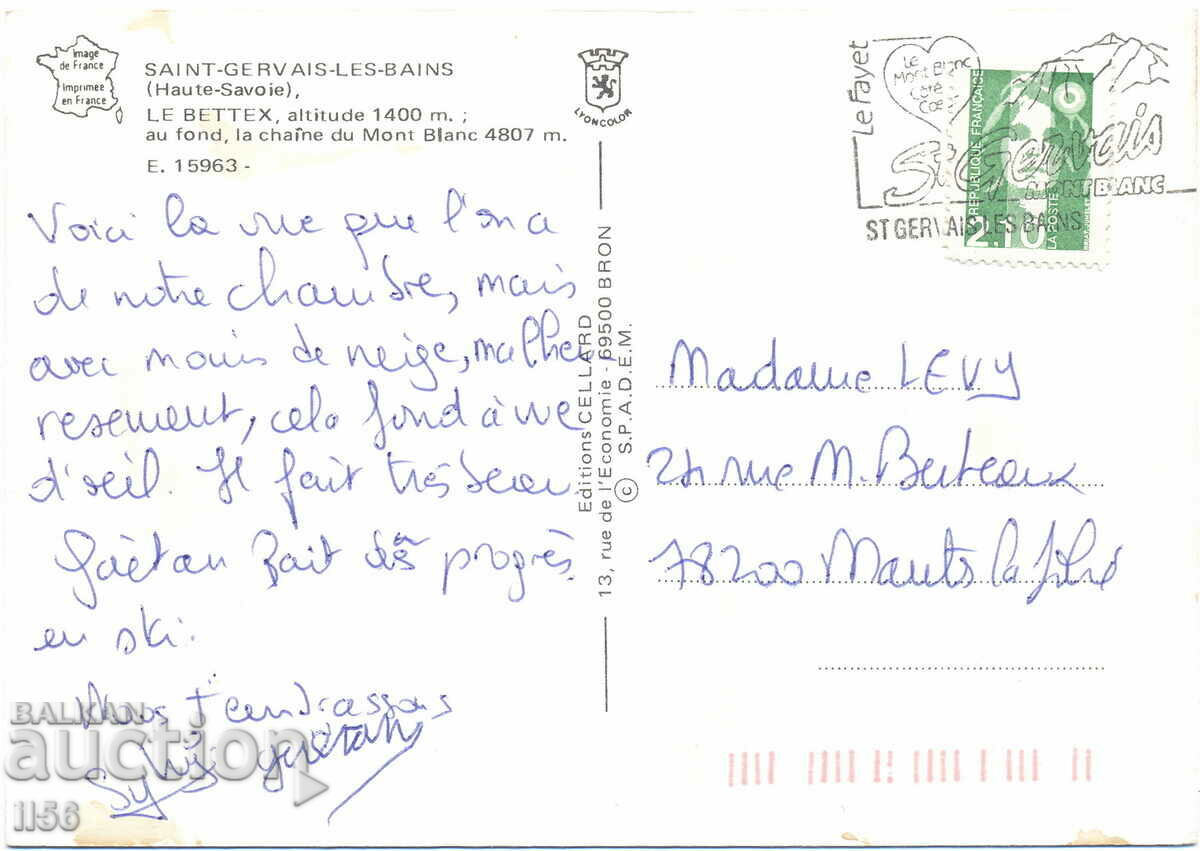 Image
de France
Imprimée
en France
SAINT-GERVAIS-LES-BAINS
(Haute-Savoie),
LE BETTEX, altitude 1400 m. ;
au fond, la chaîne du Mont Blanc 4807 m.
E. 15963 -
LYONCOLOR
Voici la vue que l'on a
de notre chambre, mais
avec moins de neige, malheu
resement, cela fond à vue
d'œil. Il fait très beau.
Gaëtan fait des progrès
en ski.
Nous t'embrassons
Sylvie Gaëtan
Editions CELLARD
13, rue de l'Economie - 69500 BRON
© S.P.A.D.E.M.
Le Fayet
Le
Mont Blanc
Côté
Cœur
St Gervais
MONT BLANC
ST GERVAIS LES BAINS
REPUBLIQUE FRANÇAISE
2.10
LA POSTE
Madame LEVY
24 rue M. Berteaux
78200 Mantes la Jolie
BALKAN
auction
1156